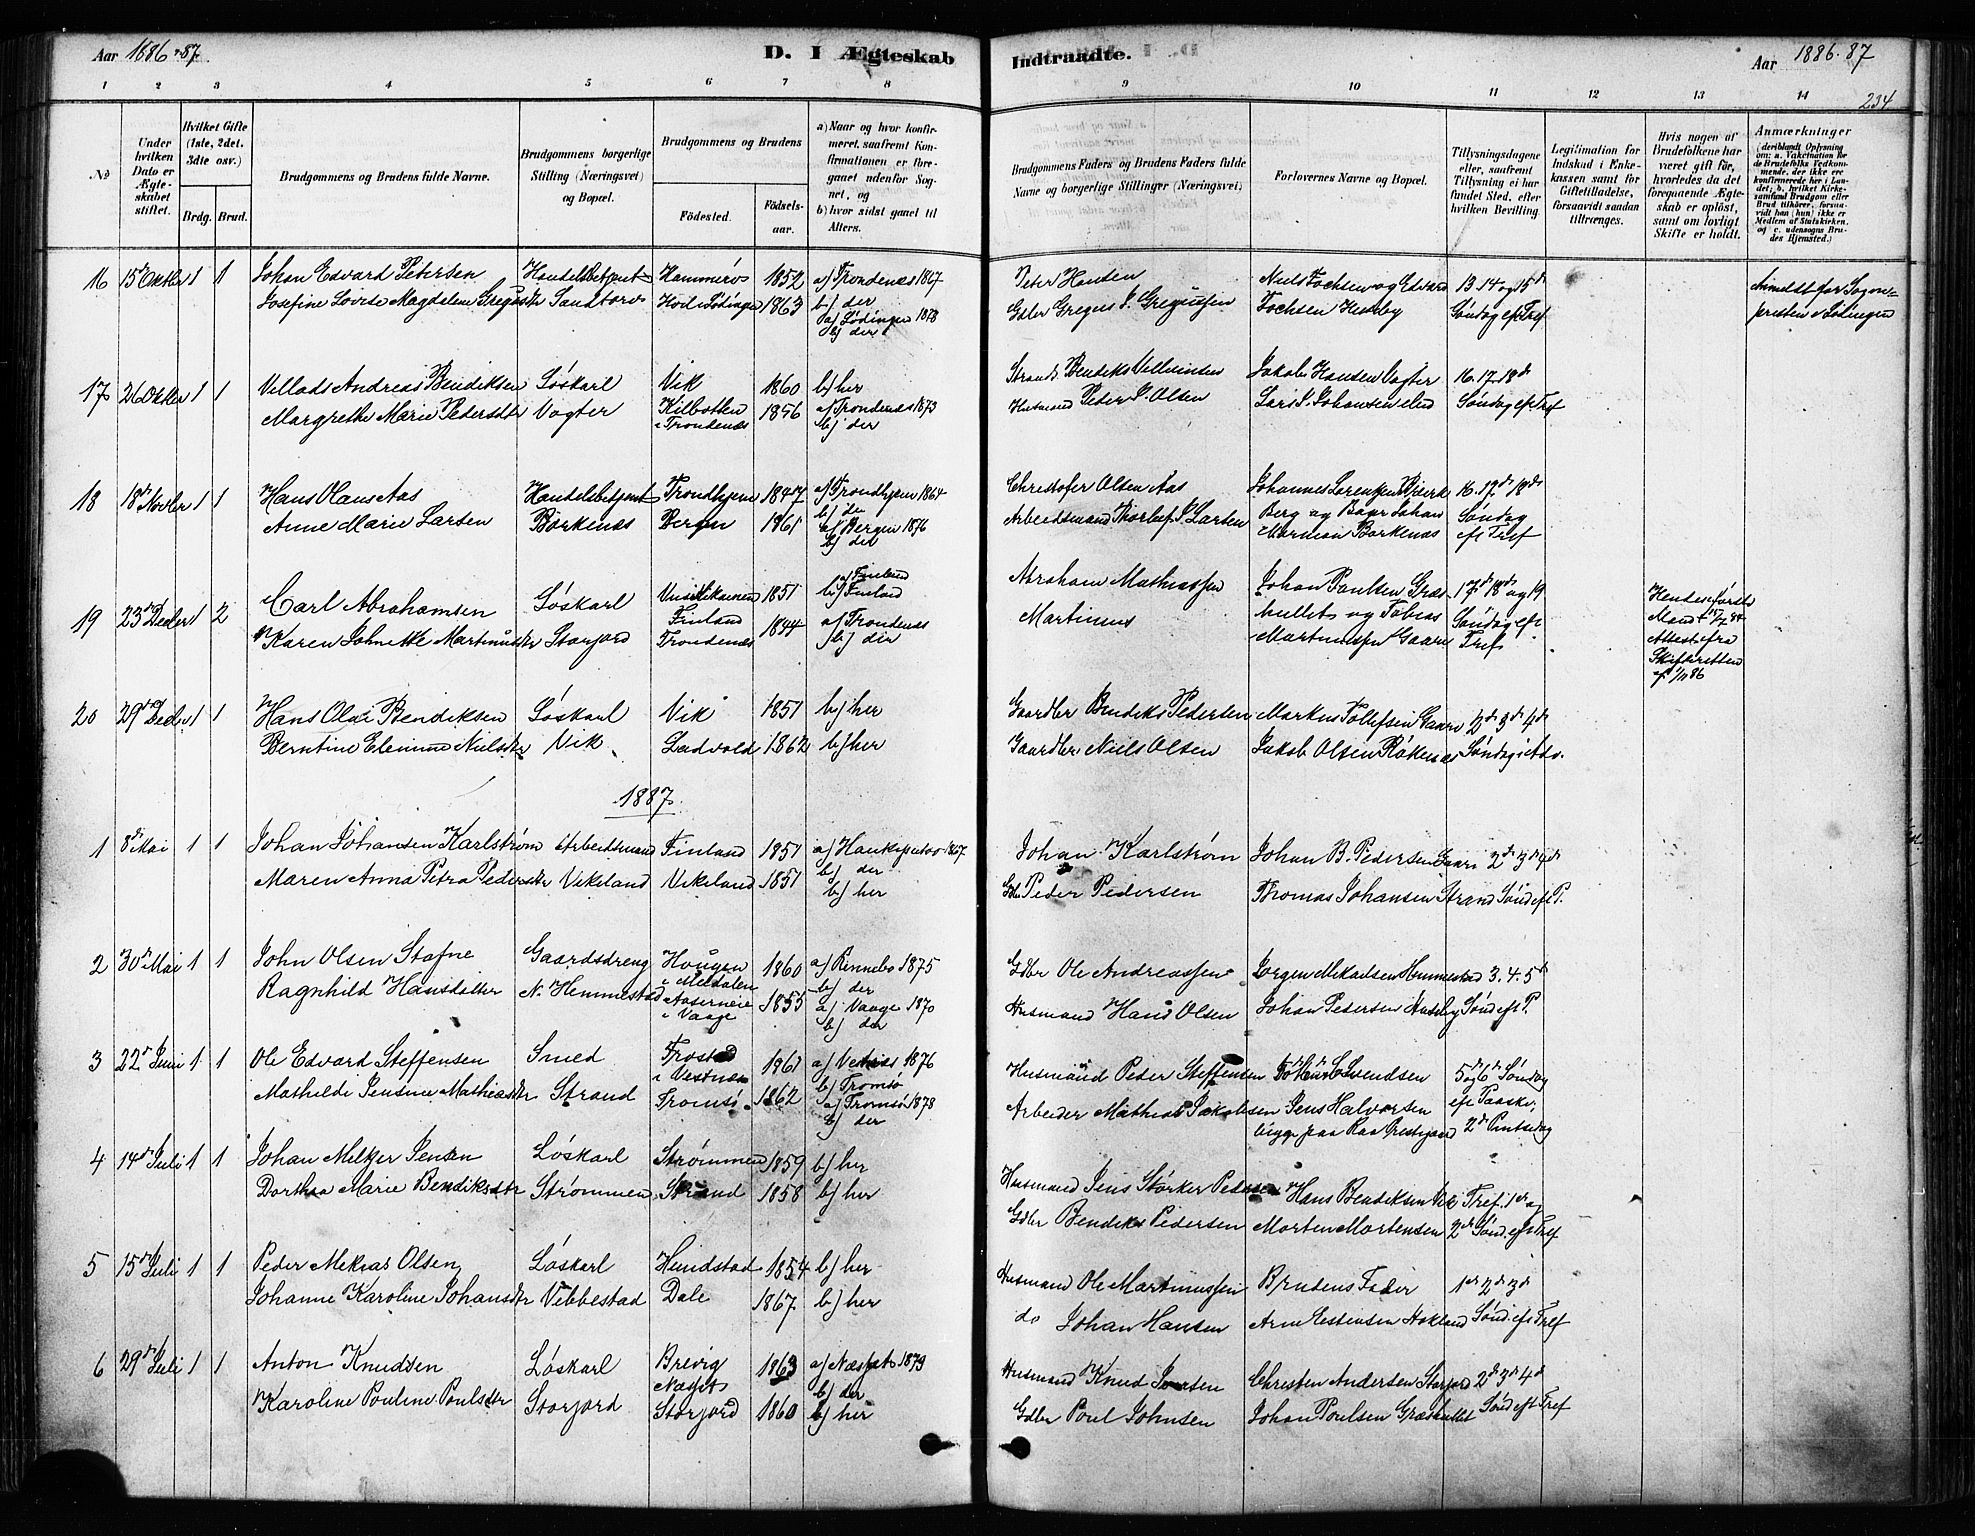 Aar 1886-87.
D. I Ægteskab
Indtraadte.
Aar 1886-87
234
1 2 3 4 5 6 7 8 9 10 11 12 13 14
No
Under hvilken Dato er Ægteskabet stiftet.
Hvilket Gifte (1ste, 2det. 3dte osv.)
Brdg. Brud.
Brudgommens og Brudens fulde Navne.
Brudgommens borgerlige Stilling (Næringsvei) og Bopæl.
Brudgommens og Brudens
Födested.
Födsels-aar.
a) Naar og hvor konfirmeret, saafremt Konfirmationen er foregaaet udenfor Sognet, og
b) hvor sidst gaaet til Alters.
Brudgommens Faders og Brudens Faders fulde Navne og borgerlige Stillinger (Næringsvei)
Forlovernes Navne og Bopæl.
Tillysningsdagene eller, saafremt Tillysning ei har fundet Sted, efter hvilken Bevilling.
Legitimation for Indskud i Enkekassen samt for Giftetilladelse, forsaavidt saadan tiltrænges.
Hvis nogen af Brudefolkene har været gift før, hvorledes da det foregaaende Ægteskab er opløst, samt om lovligt Skifte er holdt.
Anmærkninger (deriblandt Oplysning om: a. Vakcination for de Brudefolks Vedkommende, der ikke ere konfirmerede her i Landet; b. hvilket Kirkesamfund Brudgom eller Brud tilhörer, forsaavidt han (hun) ikke er Medlem af Statskirken, og c. udensogns Brudes Hjemsted.)
16 15de Oktbr 1 1 Johan Edvard Petersen Handelsbetjent Hammerø 1852 a) Trondenæs 1867 Peter Hansen Niels Fochsen og Edvard 13. 14 og 15de
Josefine Lovise Magdalene Gregusdtr Sandtorv Hol i Lødingen 1863 b) der Gdbr Gregus J. Gregussen Fochsen Husby Søndag ef Tref Anmeldt for Sogne-
a) Lødingen 1878 presten i Lødingen
b) der
17 26 Oktbr 1 1 Villads Andreas Bendiksen Løskarl Vik 1860 b) her Strands. Bendiks Jakob Hansen Vogter 16. 17. 18de
Margrethe Marie Pedersdtr Vogter Kilbotten 1856 a) Trondenæs 1873 Husmand Peder J. Olsen Lars J. Johansen Søndag ef Tref
i Trondenæs b) der
18 18de Novbr 1 1 Hans Olaus Aas Handelsbetjent Trondhjem 1847 a) Trondhjem 1864 Christofer Olsen Aas Johannes Lorentzen 16. 17de 18de
Anne Marie Larsen Borkenæs Bergen 1861 b) do Arbeidsmand Thorleif J. Larsen Berg og Johan Søndag
a) Bergen 1876 Borkenæs ef Tref
b) der
19 23de Decbr 1 2 Carl Abrahamsen Løskarl 1851 a) Finland Abraham Mathiassen Johan Paulsen Græs- 17de 18de og 19
Finland b) Finland hullet og Tobias Søndag ef
Karen Johnette Martinusdtr Storjord Trondenæs 1844 a) Trondenæs Martinus Martinussen Gaare Tref
b) der
Hendes første
Mand
Attest fra
Skifteretten
20 29de Decbr 1 1 Hans Olai Bendiksen Løskarl Vik 1851 b) her Gaardbr Bendiks Pedersen Markus Tollefsen Gaare 2de 3de 4de
Berntine Nielsdtr Vik Ladvold 1862 b) her Gaardbr Niels Olsen Jakob Olsen Røkenæs Søndag i Adv.
1887.
1 8de Mai 1 1 Johan Johansen Karlstrøm Arbeidsmand Finland 1851 a) 1867 Johan Karlstrøm Johan B. Pedersen Gaare 2de 3de 4de
Maren Anna Petra Pedersdtr Vikeland Vikeland 1851 b) der Gdbr Peder Pedersen Thomas Johansen Strand Sønd ef P.
b) her
2 30de Mai 1 1 John Olsen Stafne Gaardsdreng Hougen 1860 a) Rennebo 1875 Gdbr Ole Andreassen Jørgen Mikaelsen Hemmestad 3. 4. 5de
i Meldalen b) der
Ragnhild Hansdatter N. Hemmestad 1855 a) Vaage 1870 Husmand Hans Olsen Johan Pedersen Husby Sønd eft P.
i Vaage b) der
3 22de Juni 1 1 Ole Edvard Steffensen Smed 1861 a) Vestnæs 1876 Husmand Peder Steffensen Svendsen 5 og 6de Søndag
i Vestnæs b) Tromsø ef Paaske,
Mathilde Jensine Mathiasdtr Strand Tromsø 1862 a) Tromsø 1878 Arbeider Mathias Jakobsen Jens Halvorsen 2de Pintsedag
b) der begge paa Prestgaard
4 14de Juli 1 1 Johan Melker Jensen Løskarl Strømmen 1859 b) her Husmand Jens Størker Pedersen Hans Bendiksen Vik Tref. 1ste og
Dorthea Marie Bendiksdtr Strømmen Strand 1858 b) her Gdbr Bendiks Pedersen Morten Mortensen 2de Sønd. eft Tref
5 15de Juli 1 1 Peder Mekias Olsen Løskarl Hundstad 1854 b) her Husmand Ole Martinussen Brudens Fader 1ste 2de 3de
Johanne Karoline Johansdtr Vebbestad Dale 1867 b) her do Johan Hansen Hokland Sønd. eft Tref
6 29de Juli 1 1 Anton Knudsen Løskarl Brevig 1863 a) Næs 1879 Husmand Knud Christen Andersen Storjord 2de 3de 4de
b) der
Karoline Pouline Poulsdtr Storjord Storjord 1860 b) her Gdbr Poul Johnsen Johan Poulsen Græshullet Sønd eft Tref